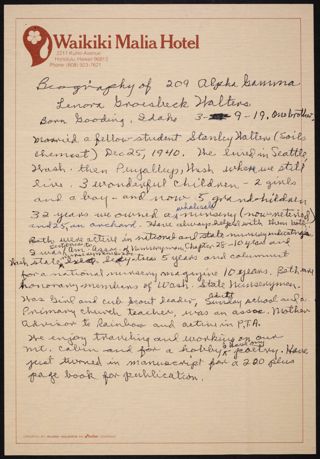 Waikiki Malia Hotel
2211 Kuhio Avenue
Honolulu, Hawaii 96815
Phone (808) 923-7621
Biography of 209 Alpha Gamma
Lenora Groesbeck Walters
Born Gooding, Idaho 3- -9-19. One brother.
Married a fellow student Stanley Walters (soils
chemist) Dec 25, 1940. We lived in Seattle,
Wash. then Puyallup, Wash where we still
live. 3 wonderful children - 2 girls
and a boy - and now 5 grandchildren
32 years we owned a wholesale nursery (now retired)
and 25, an orchard. Have always helped with them both
Both were active in national and state nursery industry
I was editor for Wn. Assn of Nurserymen Chapter 28 - 10 years and
Wash. state 5 years and columnist
for a national nursery magazine 10 years. Both are
honorary members of Wash. State Nurserymen.
Was Girl and Cub Scout leader, Sunday school and
Primary church teacher, was an assoc. Mother
Advisor to Rainbow and active in P.T.A.
We enjoy traveling and working on our
Mt. cabin and for a hobby I write poetry. Have
just turned in manuscript for a 200 plus
page book for publication.